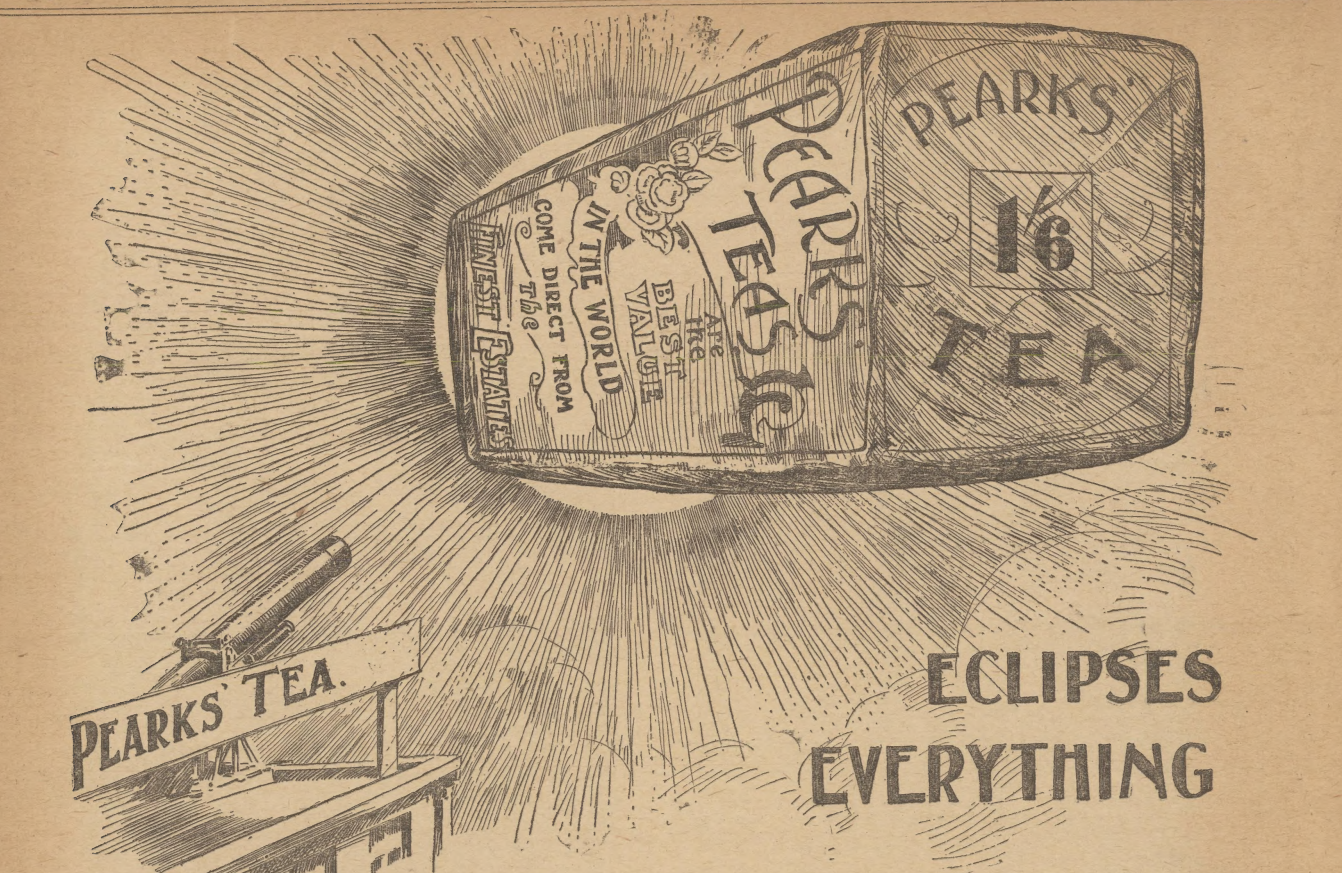 PEARKS'
1/6
TEA
PEARKS'
TEAS
Are
the
BEST
VALUE
IN THE WORLD
COME DIRECT FROM
The
FINEST ESTATES
PEARKS' TEA.
ECLIPSES
EVERYTHING